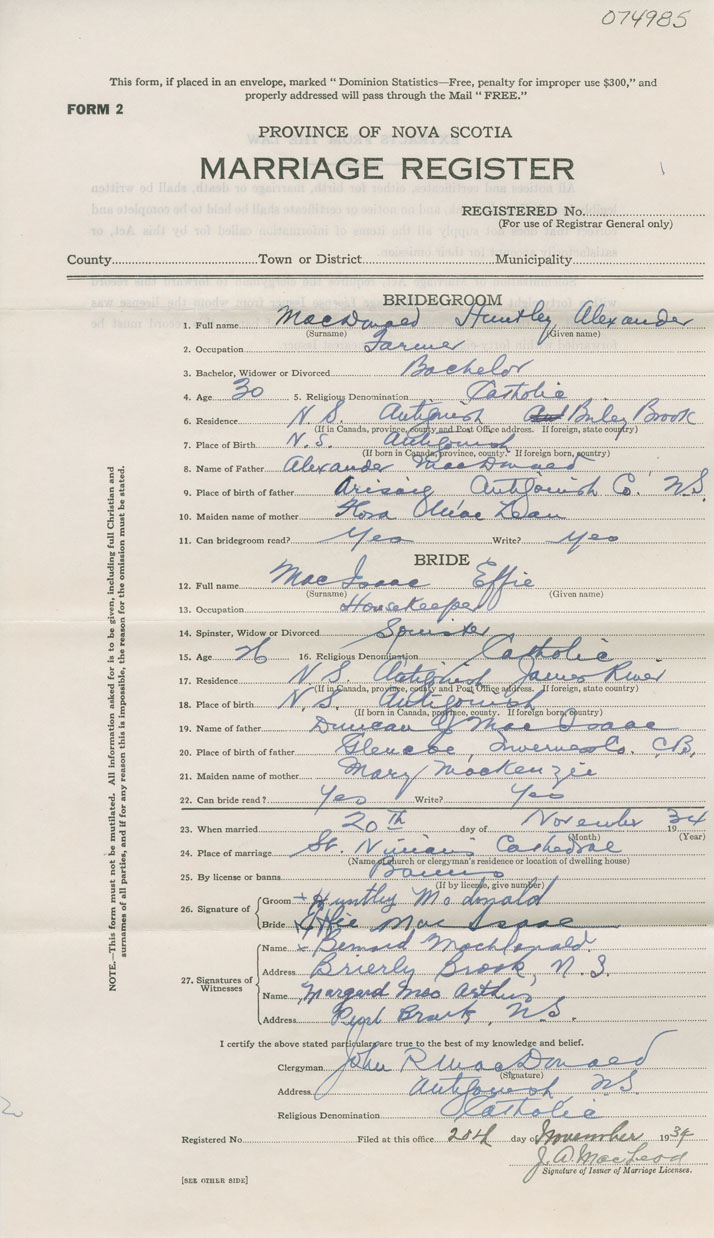 074985
This form, if placed in an envelope, marked " Dominion Statistics—Free, penalty for improper use $300," and
properly addressed will pass through the Mail " FREE."
FORM 2
PROVINCE OF NOVA SCOTIA
MARRIAGE REGISTER
REGISTERED No.
(For use of Registrar General only)
County Town or District Municipality
BRIDEGROOM
1. Full name MacDonald Huntley Alexander
(Surname) (Given name)
2. Occupation Farmer
3. Bachelor, Widower or Divorced Bachelor
4. Age 30 5. Religious Denomination Catholic
6. Residence N.S. Antigonish Brierly Brook
(If in Canada, province, county and Post Office address. If foreign, state country)
7. Place of Birth N.S. Antigonish
(If born in Canada, province, county. If foreign born, country)
8. Name of Father Alexander MacDonald
9. Place of birth of father Arisaig Antigonish Co. N.S.
10. Maiden name of mother Flora MacLean
11. Can bridegroom read? Yes Write? Yes
BRIDE
12. Full name MacIsaac Effie
(Surname) (Given name)
13. Occupation Housekeeper
14. Spinster, Widow or Divorced Spinster
15. Age 26 16. Religious Denomination Catholic
17. Residence N.S. Antigonish James River
(If in Canada, province, county and Post Office address. If foreign, state country)
18. Place of birth N.S. Antigonish
(If born in Canada, province, county. If foreign born, country)
19. Name of father Duncan J MacIsaac
20. Place of birth of father Glencoe, Inverness Co. C.B.
21. Maiden name of mother Mary MacKenzie
22. Can bride read? Yes Write? Yes
23. When married 20th day of November 1934
(Month) (Year)
24. Place of marriage St. Ninians Cathedral
(Name of church or clergyman's residence or location of dwelling house)
25. By license or banns Banns
(If by license, give number)
26. Signature of Groom Huntley McDonald
Bride Effie MacIsaac
27. Signatures of Witnesses
Name Bernard MacDonald
Address Brierly Brook, N.S.
Name Margaret MacArthur
Address Brook, N.S.
I certify the above stated particulars are true to the best of my knowledge and belief.
Clergyman John R MacDonald
(Signature)
Address Antigonish N.S.
Religious Denomination Catholic
Registered No. Filed at this office 20th day of November 1934
J. A. MacLeod
Signature of Issuer of Marriage Licenses.
[SEE OTHER SIDE]
NOTE.—This form must not be mutilated. All information asked for is to be given, including full Christian and
surnames of all parties, and if for any reason this is impossible, the reason for the omission must be stated.